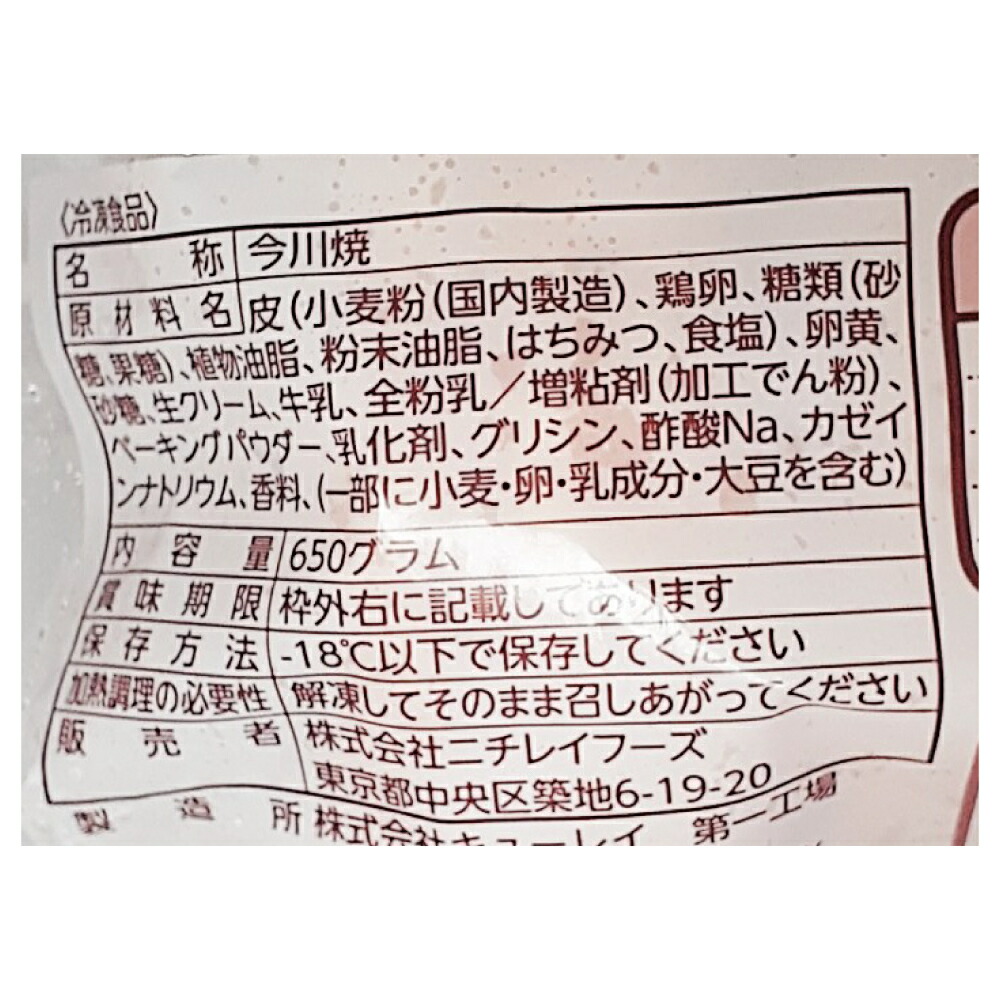 〈冷凍食品〉
名称 今川焼
原材料名 皮(小麦粉(国内製造)、鶏卵、糖類(砂
糖、果糖)、植物油脂、粉末油脂、はちみつ、食塩)、卵黄、
砂糖、生クリーム、牛乳、全粉乳／増粘剤(加工でん粉)、
ベーキングパウダー、乳化剤、グリシン、酢酸Na、カゼイ
ンナトリウム、香料、(一部に小麦・卵・乳成分・大豆を含む)
内容量 650グラム
賞味期限 枠外右に記載してあります
保存方法 -18℃以下で保存してください
加熱調理の必要性 解凍してそのまま召しあがってください
販売者 株式会社ニチレイフーズ
東京都中央区築地6-19-20
製造所 株式会社キューレイ 第一工場